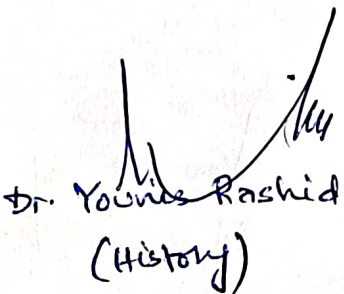 Dr. Younis Rashid
(History)